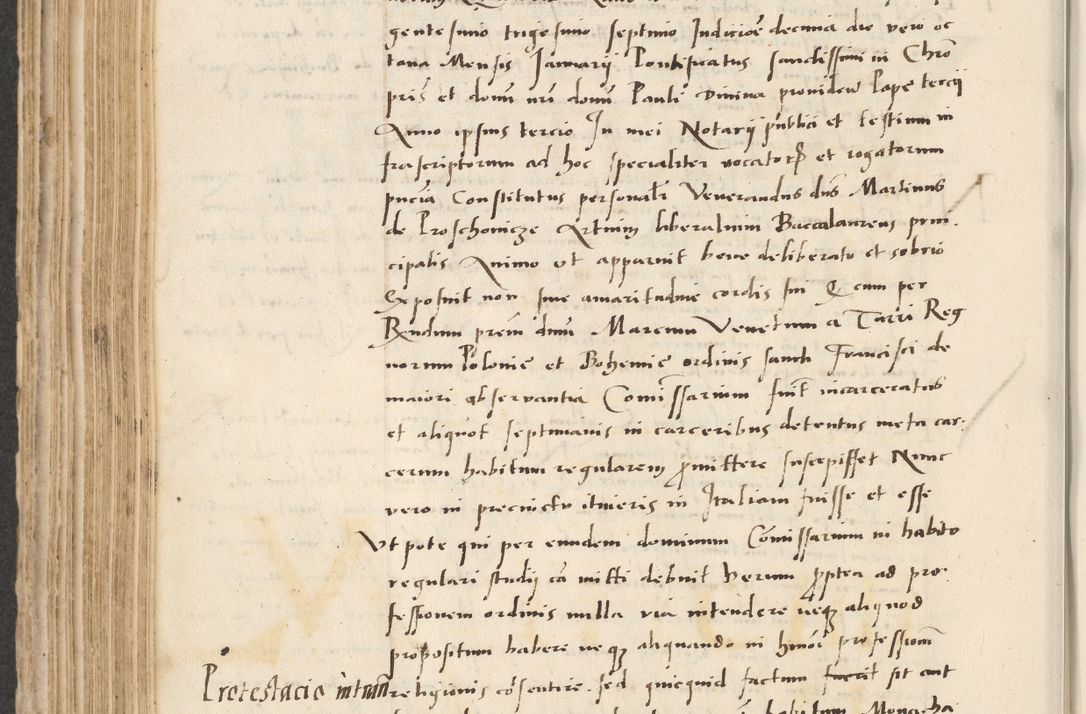 gentesimo trigesimo septimo Indicioē decima die vero oc
tava Mensis Januarij Pontificatus sanctissimi in Chrō
pris̄ et domī nrī domī Pauli divina providēn Pape tercij
Anno ipsius tercio In mei Notarij publici et testium in
frascriptorum ad hoc specialiter vocator[um] et rogatorum
pn̄cia Constitutus personalr̄ Venerandus dn̄s Martinus
de Proschovicze Artium liberalium Baccalaureus prin
cipalis Animo ut apparuit bene deliberato et sobrio
Exposuit non sine amaritudine cordis sui Q cum per
Rndum prēm dnm̄ Marcum Venetum a Tarri Reg
norum Poloniē et Bohemiē ordinis sancti Francisci de
maiori observantia Comīssarium fuīt incarceratus
et aliquot septimanis in carceribus detentus metu car:
cerum habitum regularem promittere suscepisset Nunc
vero in precinctu itineris in Italiam fuisse et esse
Ut pote qui per eundem dominum Comīssarium in habito
regulari studij cā mitti debuit Verum propterea ad pro
fessionem ordinis nulla via intendere neque aliquod
propositum habere neque aliquando in hmōi professionē
Protestacio
religionis cōsentire. sed quicquid factum fuerit sit aut
habitum Monacha